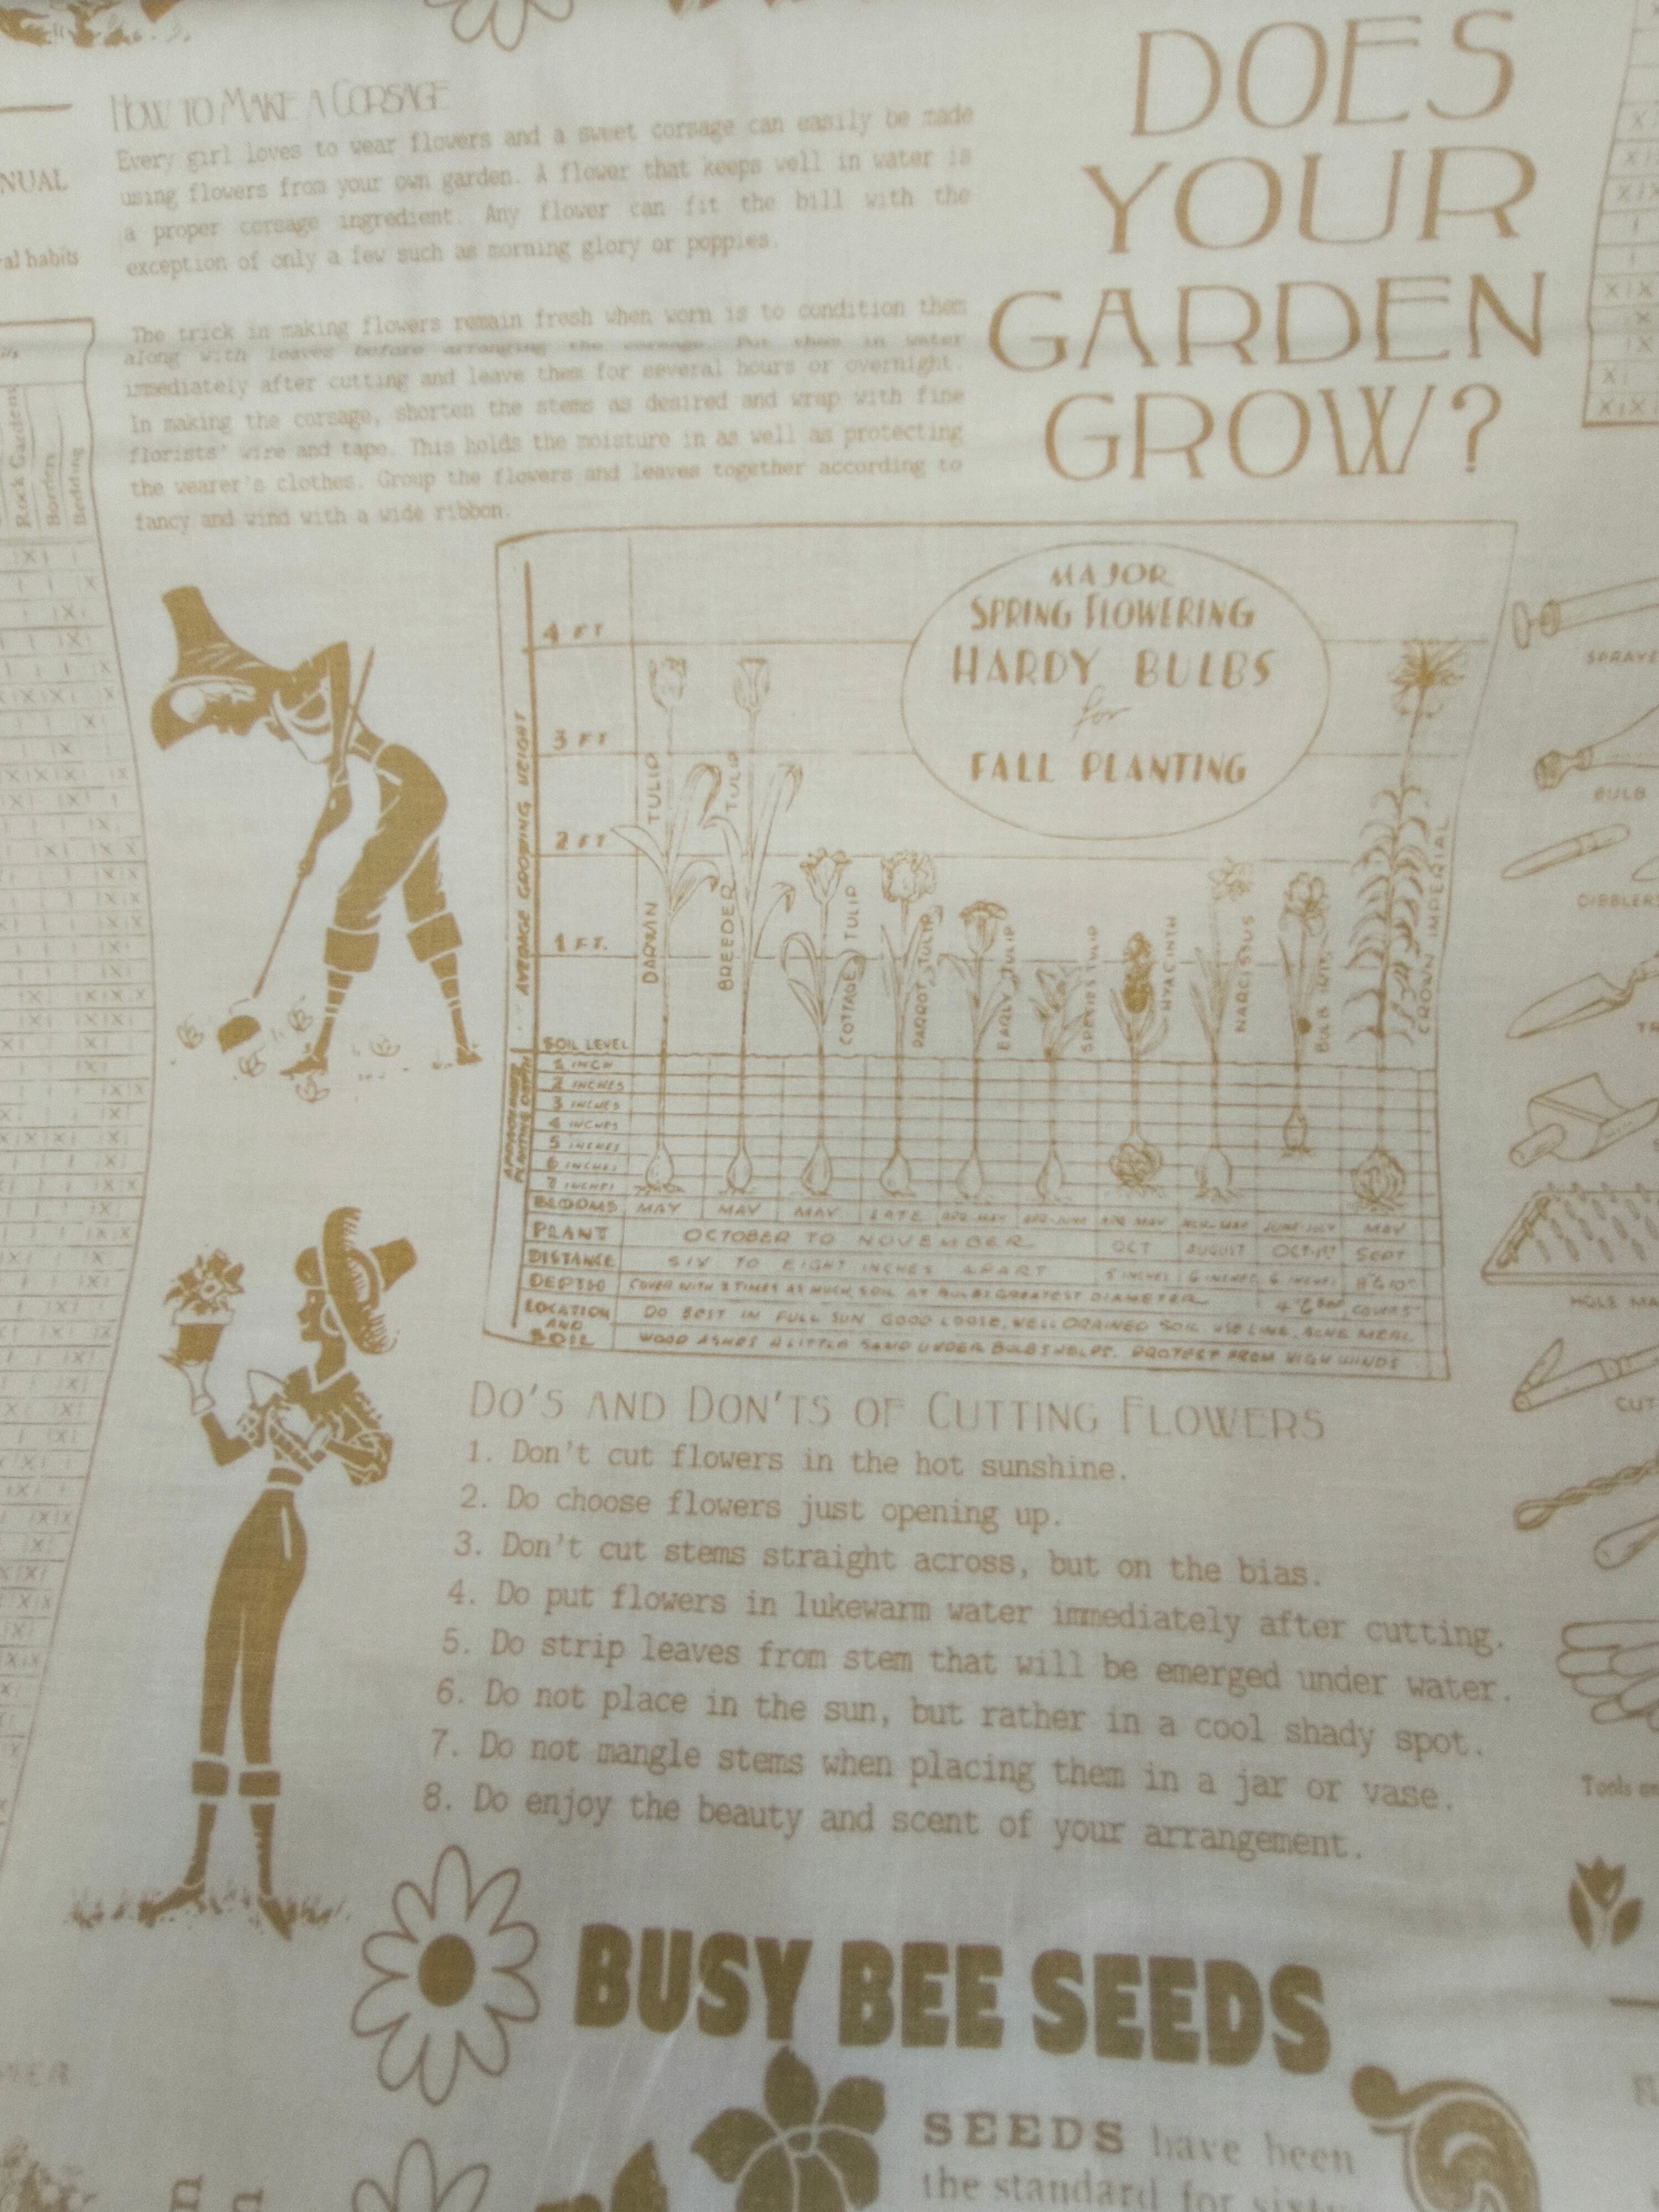 HOW TO MAKE A CORSAGE
Every girl loves to wear flowers and a sweet corsage can easily be made
using flowers from your own garden. A flower that keeps well in water is
a proper corsage ingredient. Any flower can fit the bill with the
exception of only a few such as morning glory or poppies.
The trick in making flowers remain fresh when worn is to condition them
along with leaves before arranging the corsage. Put them in water
immediately after cutting and leave them for several hours or overnight.
In making the corsage, shorten the stems as desired and wrap with fine
florists' wire and tape. This holds the moisture in as well as protecting
the wearer's clothes. Group the flowers and leaves together according to
fancy and wind with a wide ribbon.
DOES
YOUR
GARDEN
GROW?
NUAL
ral habits
Rock Gardens
Borders
Bedding
MAJOR
SPRING FLOWERING
HARDY BULBS
for
FALL PLANTING
AVERAGE GROWING HEIGHT
4 FT
3 FT
2 FT
1 FT.
DARWIN TULIP
BREEDER TULIP
COTTAGE TULIP
PARROT TULIP
EARLY TULIP
SPECIES TULIP
HYACINTH
NARCISSUS
BULB IRIS
CROWN IMPERIAL
SOIL LEVEL
PLANTING DEPTH
1 INCH
2 INCHES
3 INCHES
4 INCHES
5 INCHES
6 INCHES
7 INCHES
BLOOMS MAY MAY MAY LATE APR-MAY APR-JUNE APR MAY JUNE-JULY MAY
PLANT OCTOBER TO NOVEMBER OCT AUGUST OCT SEPT
DISTANCE SIX TO EIGHT INCHES APART 5 INCHES 6 INCHES 6 INCHES
DEPTH COVER WITH 3 TIMES AS MUCH SOIL AT BULBS GREATEST DIAMETER COVER 5"
LOCATION AND SOIL DO BEST IN FULL SUN GOOD LOOSE, WELL DRAINED SOIL USE LIME, BONE MEAL
WOOD ASHES A LITTLE SAND UNDER BULBS HELPS. PROTECT FROM HIGH WINDS
DO'S AND DON'TS OF CUTTING FLOWERS
1. Don't cut flowers in the hot sunshine.
2. Do choose flowers just opening up.
3. Don't cut stems straight across, but on the bias.
4. Do put flowers in lukewarm water immediately after cutting.
5. Do strip leaves from stem that will be emerged under water.
6. Do not place in the sun, but rather in a cool shady spot.
7. Do not mangle stems when placing them in a jar or vase.
8. Do enjoy the beauty and scent of your arrangement.
SPRAYE
BULB
DIBBLERS
TR
HOLE MA
CUT
Tools
BUSY BEE SEEDS
SEEDS have been
the standard for sixty